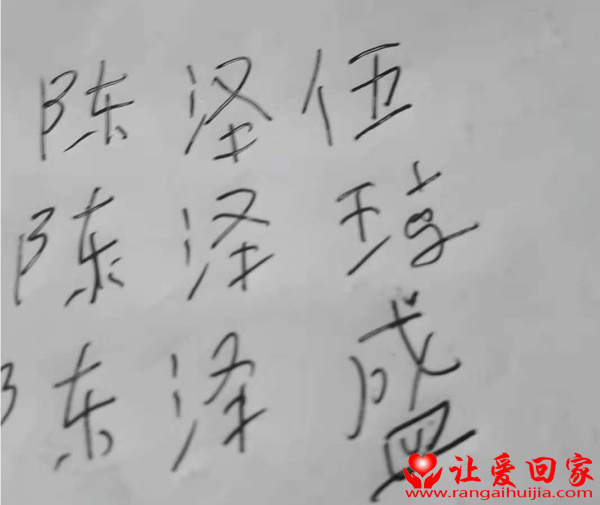 陈泽伍
陈泽琼
陈泽盛
让爱回家
www.rangaihuijia.com